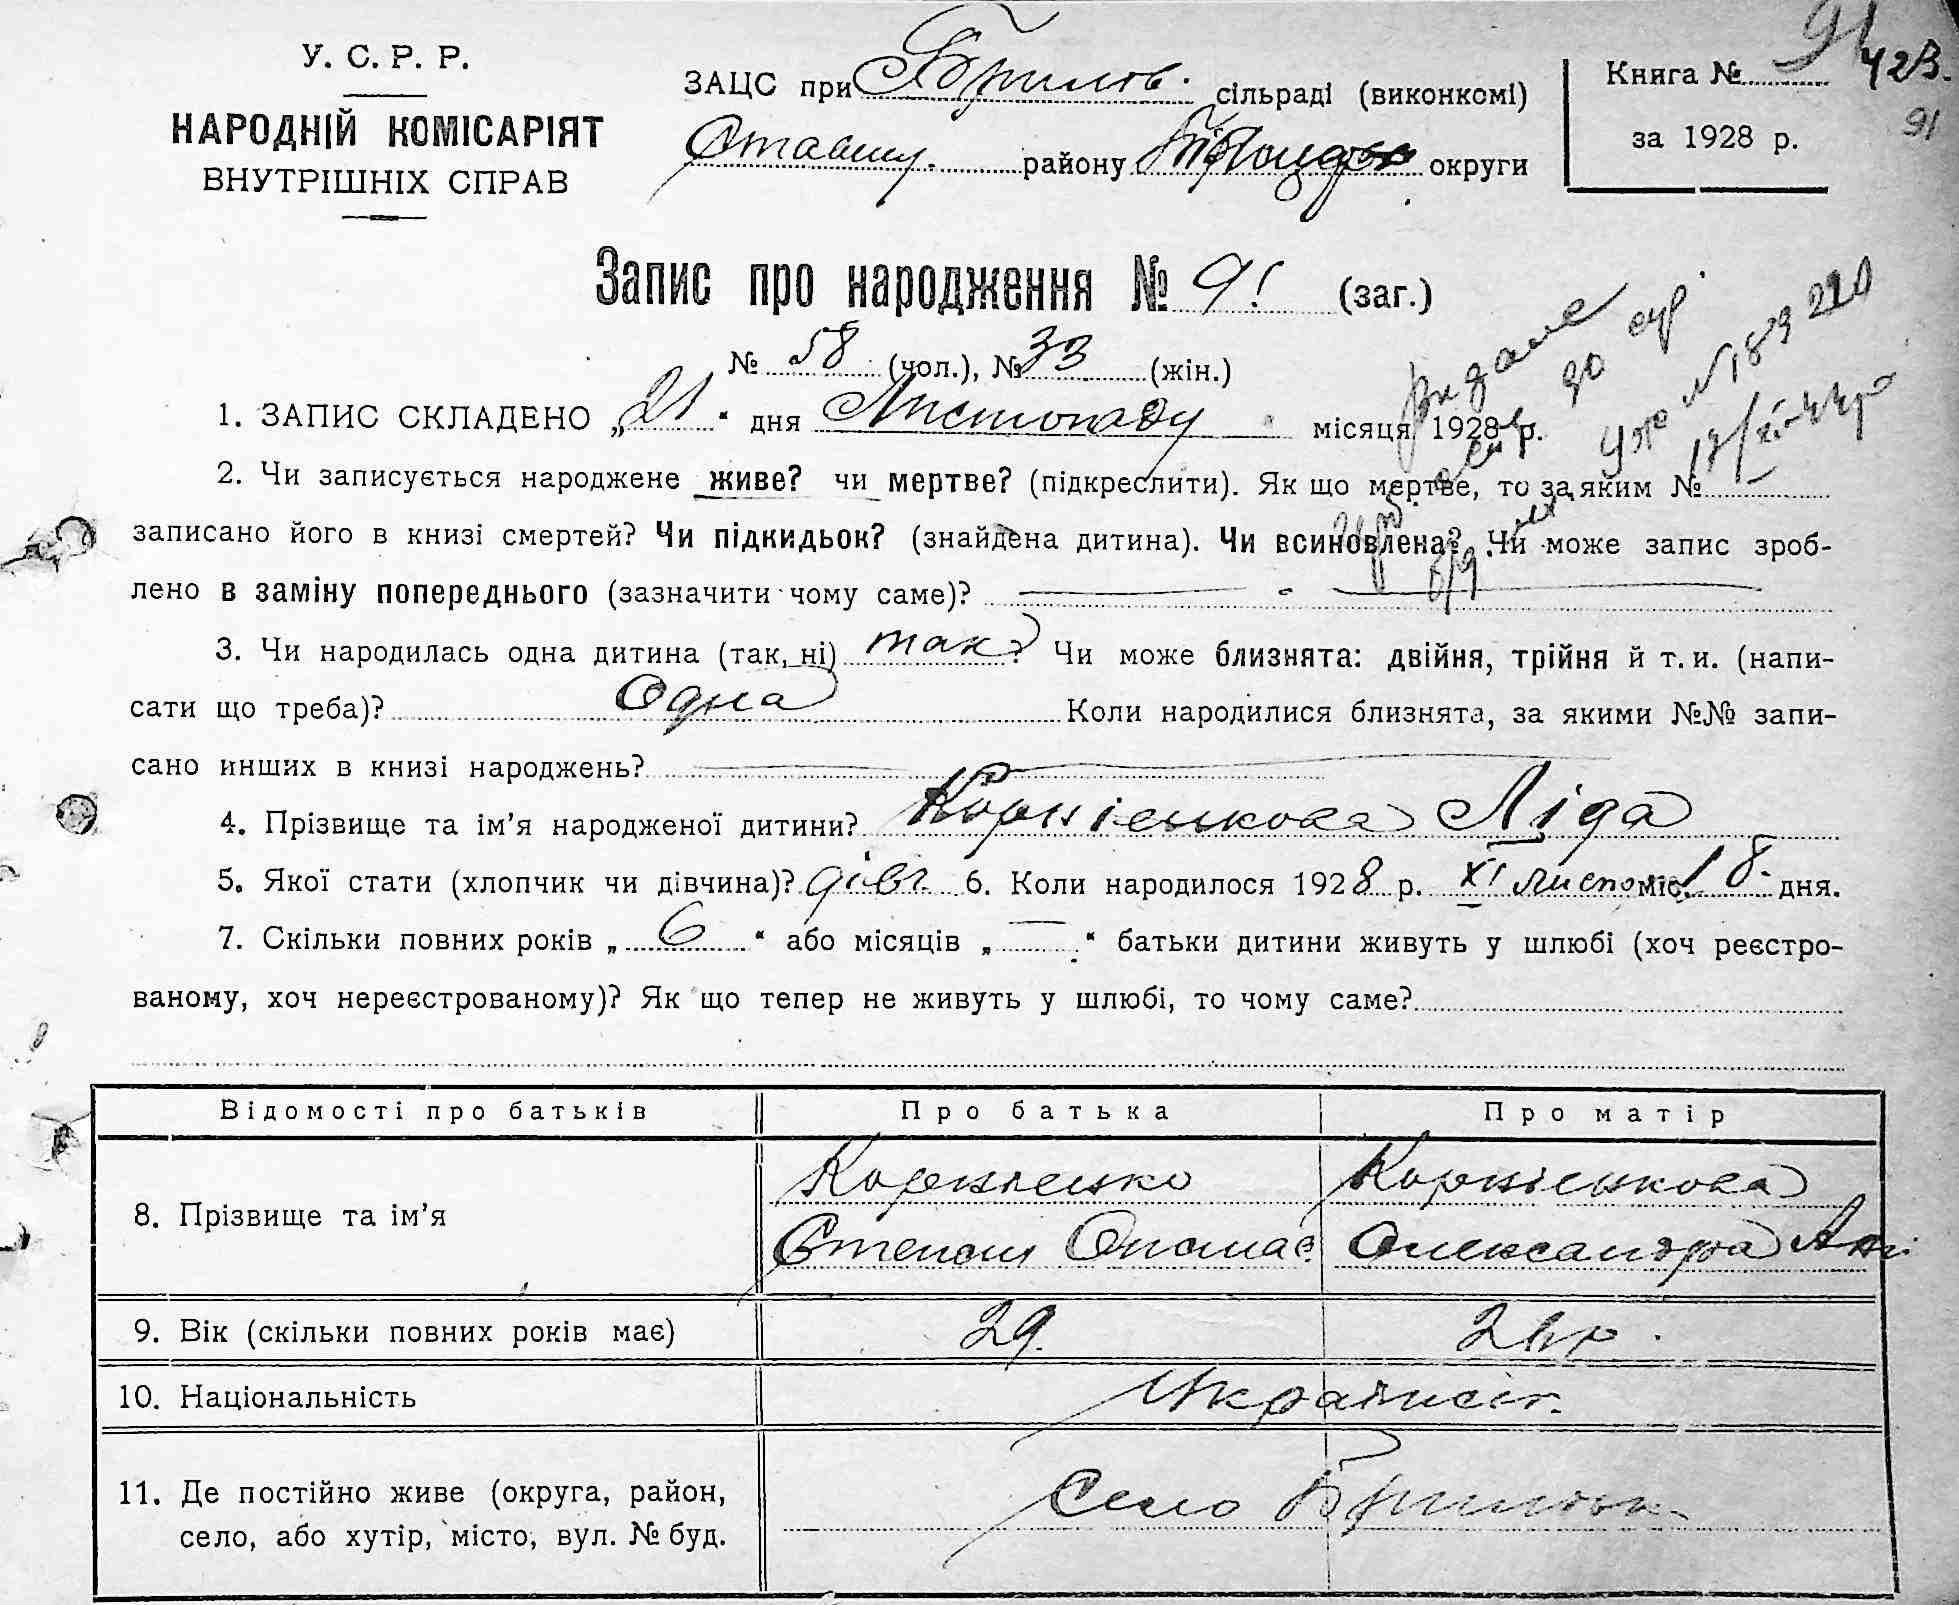 У. С. Р. Р.
НАРОДНІЙ КОМІСАРІЯТ
ВНУТРІШНІХ СПРАВ
ЗАЦС при сільраді (виконкомі)
району округи
Книга №
за 1928 р.
91
423.
91
Запис про народження № 91 (заг.)
№ 58 (чол.), № 33 (жін.)
1. ЗАПИС СКЛАДЕНО „21“ дня Листопаду місяця 1928 р.
2. Чи записується народжене живе? чи мертве? (підкреслити). Як що мертве, то за яким №
записано його в книзі смертей? Чи підкидьок? (знайдена дитина). Чи всиновлена? Чи може запис зроб-
лено в заміну попереднього (зазначити чому саме)?
3. Чи народилась одна дитина (так, ні) так? Чи може близнята: двійня, трійня й т. и. (напи-
сати що треба)? Одна Коли народилися близнята, за якими №№ запи-
сано инших в книзі народжень?
4. Прізвище та ім’я народженої дитини? Корнієнкова Ліда
5. Якої стати (хлопчик чи дівчина)? дівч. 6. Коли народилося 1928 р. XI листоп міс. 18 дня.
7. Скільки повних років „6“ або місяців „—“ батьки дитини живуть у шлюбі (хоч реєстро-
ваному, хоч нереєстрованому)? Як що тепер не живуть у шлюбі, то чому саме?
Відомості про батьків Про батька Про матір
8. Прізвище та ім’я
Корнієнко Корнієнкова
Степан Опанас. Олександра
9. Вік (скільки повних років має) 29.
10. Національність
11. Де постійно живе (округа, район,
село, або хутір, місто, вул. № буд.
Село